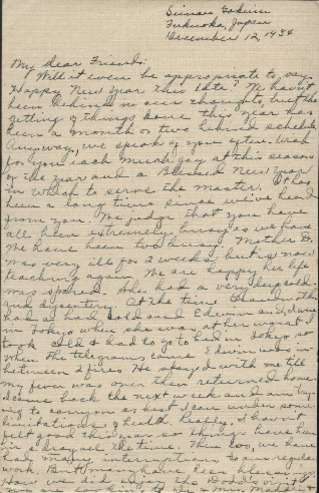 Fukuoka, Japan
December 12, 1934
My dear Friends:
Will it even be appropriate to say
Happy New Year this late? We haven't
been behind in our thoughts, but the
getting of things done this year has
been a month or two behind schedule.
Anyway, we speak of you often. Wish
for you each much joy at this season
of the year and a Blessed New Year
in which to serve the Master. It has
been a long time since we've heard
from you. We judge that you have
all been extremely busy as we have.
We have been too busy. Mother D.
was very ill for 2 weeks, but is now
teaching again. We are happy her life
was spared. She had a very deep cold
and dysentery. At the time
had a bad cold and Edwin and I were
in Tokyo when she was at her worst. I
took cold & had to go to bed in Tokyo so
when the telegrams came Edwin was in
between 2 fires. He stayed with me till
my fever was over then returned home.
I came back the next week and am try-
ing to carry on as best I can under some
limitations of health. Really, I haven't
felt good this year so things have been
in a all the time. Then too, we have
had in addition to our regular
work. But many have been blessings.
How we did enjoy the Dodd's visit